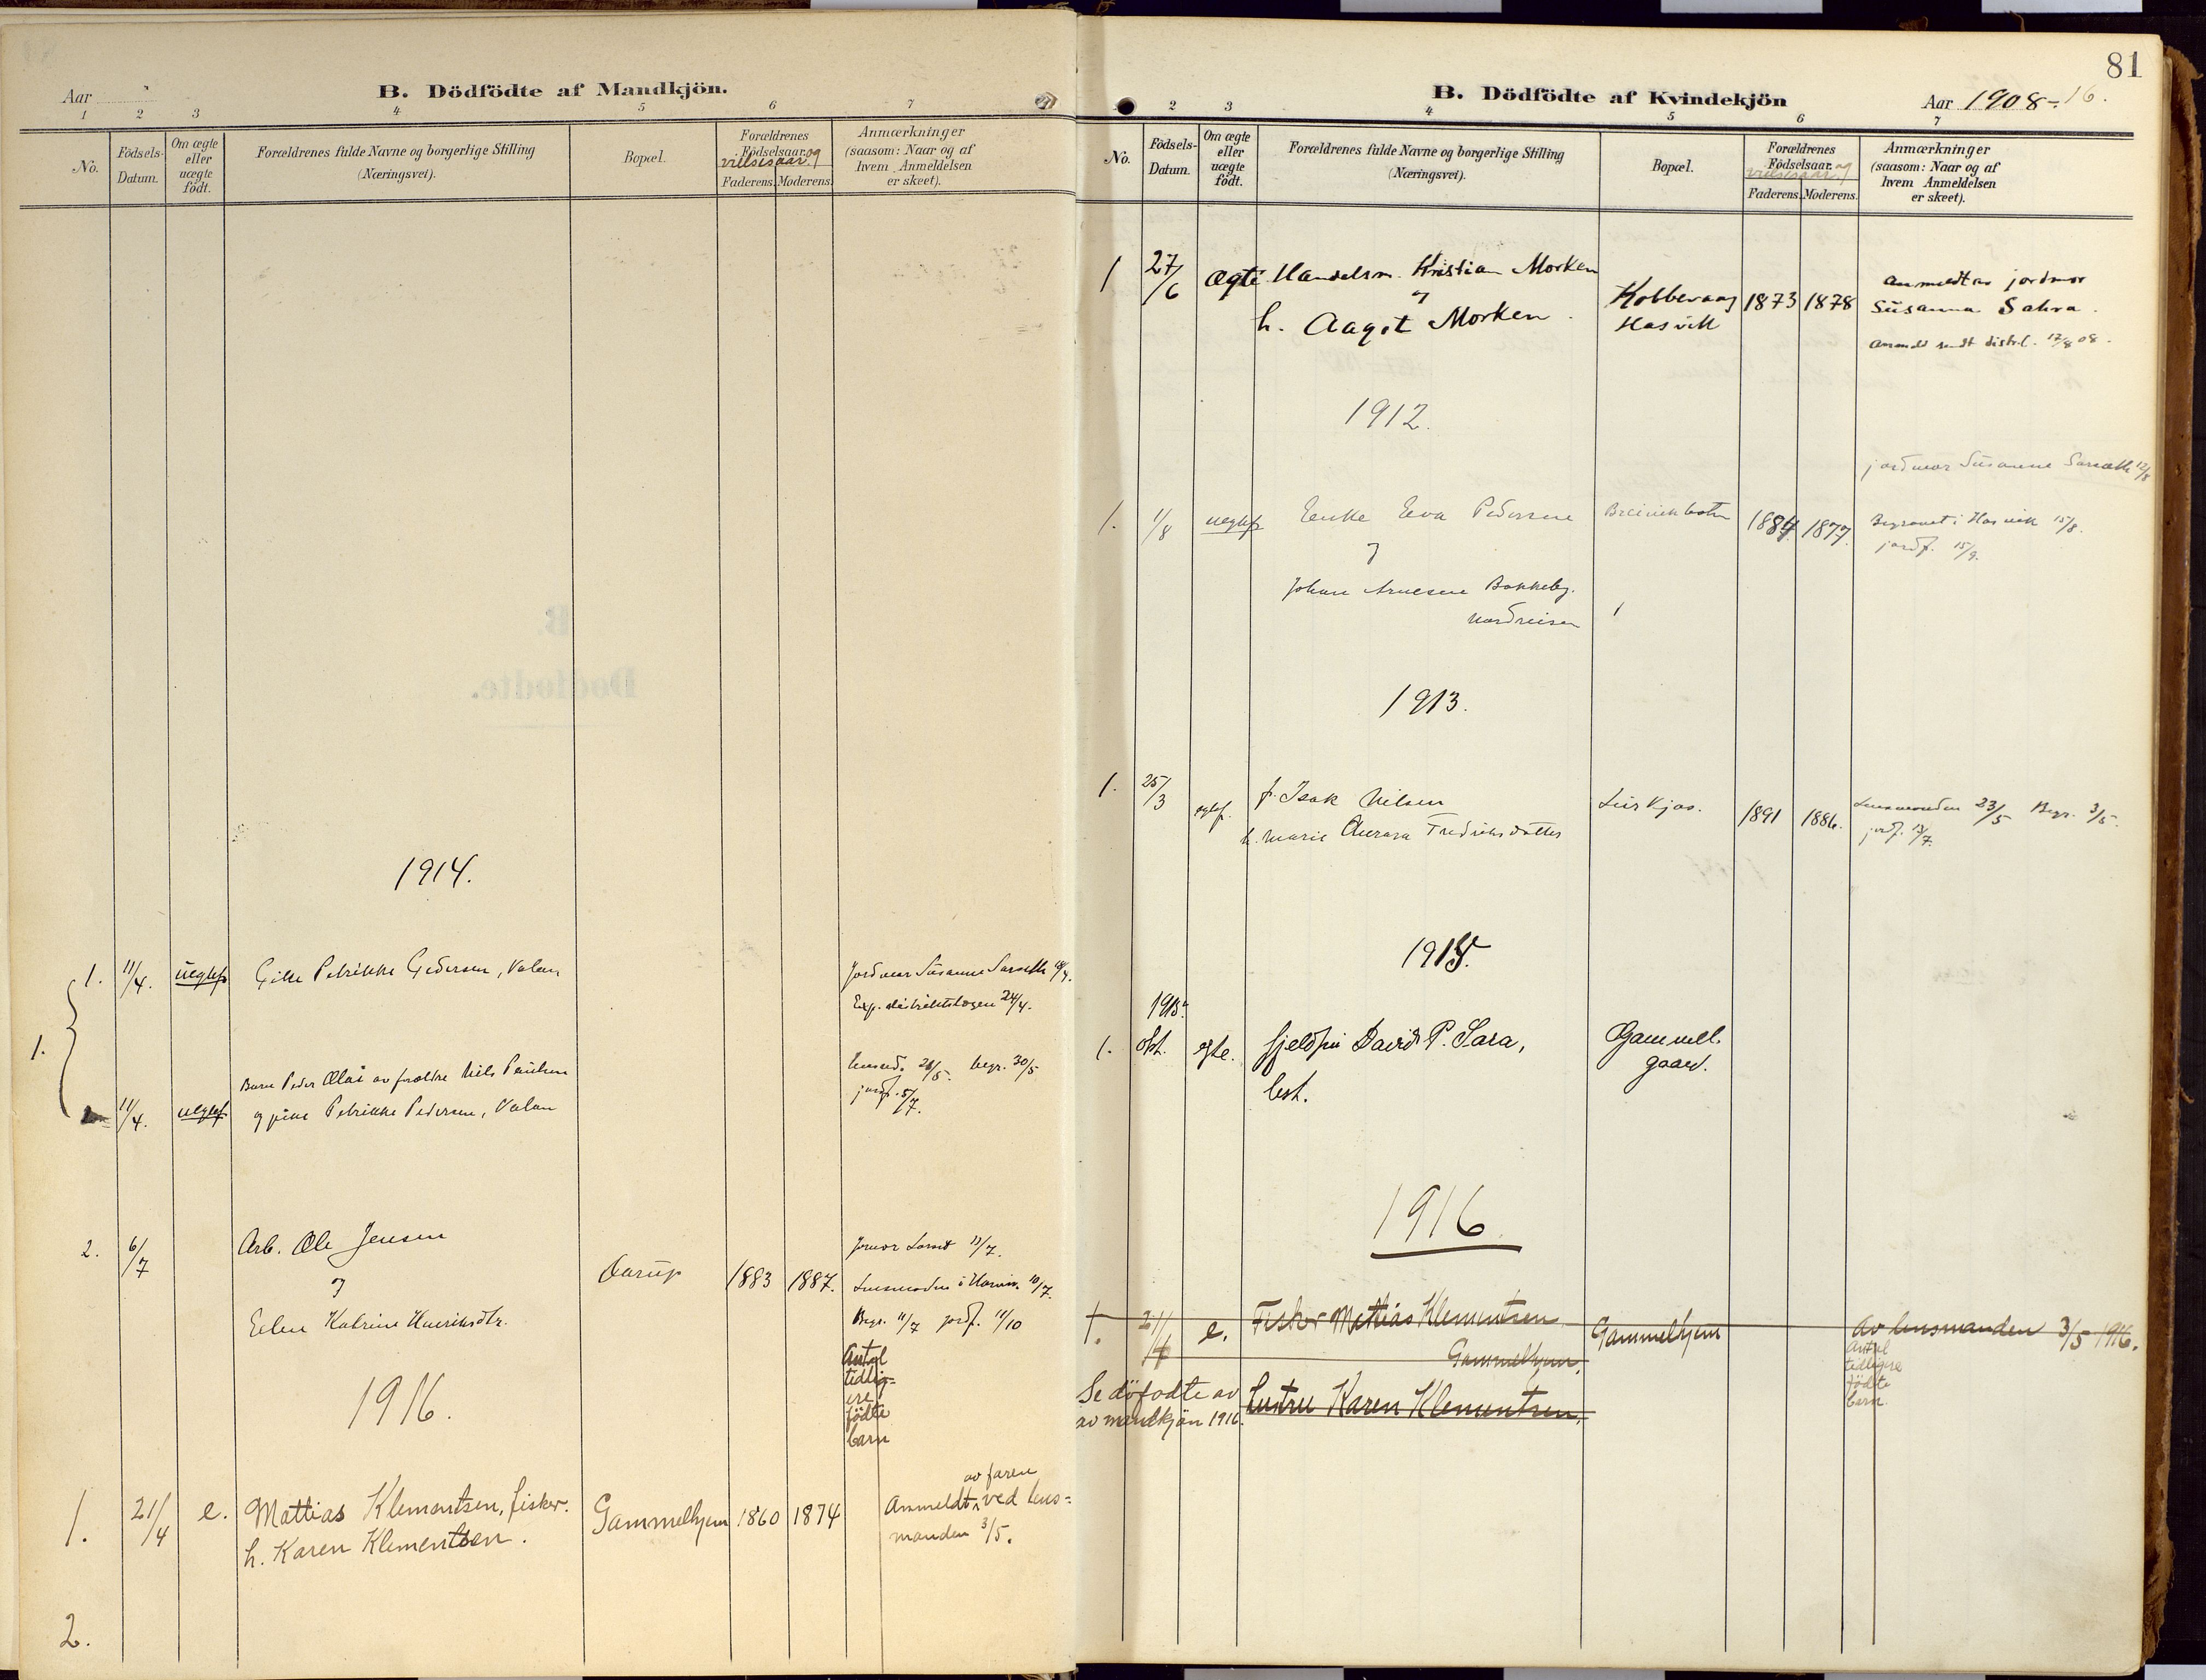 Aar
B. Dödfödte af Mandkjön.
1 2 3 4 5 6 7
No.
Födsels-
Datum.
Om ægte
eller
uægte
födt.
Forældrenes fulde Navne og borgerlige Stilling
(Næringsvei).
Bopæl.
Forældrenes
Födselsaar. og
vielsesaar.
Faderens. Moderens.
Anmærkninger
(saasom: Naar og af
hvem Anmeldelsen
er skeet).
1914.
1. 11/4. uegtef Petrikke Pedersen, Valan
Jordmor Susanne
24/4.
1.
Barn Peder Olai av forældre Nils Paulsen
11/4. uegtef og pike Petrikke Pedersen, Valan
begr. 30/5
jordf. 5/7.
2. 6/7 Arb. Ole Jensen
og
Aarup 1883 1887.
Elen Katrine Henriksdtr.
13/7.
Lensmanden i Hasvik 10/7.
Begr. 11/7 jordf. 11/10
Antal
tidlig=
ere
födte
barn
1916.
1. 21/4 e. Mattias Klementsen, fisker.
h. Karen Klementsen.
Gammelhjem 1860 1874
av faren
Anmeldt ved lens=
manden 3/5.
2.
81
B. Dödfödte af Kvindekjön
Aar 1908-16.
2 3 4 5 6 7
No.
Födsels-
Datum.
Om ægte
eller
uægte
födt.
Forældrenes fulde Navne og borgerlige Stilling
(Næringsvei).
Bopæl.
Forældrenes
Födselsaar. og
vielsesaar.
Faderens. Moderens.
Anmærkninger
(saasom: Naar og af
hvem Anmeldelsen
er skeet).
1 27/6 ægte Handelsm. Kristian Morken
og
h. Aagot Morken.
Kobbevaag
Hasvik
1873 1878
Anmeldt av jordmor
Susanna Sahra.
Anmeldt sendt distr.l. 17/8 08.
1912.
jordmor Susanne 12/8
1. 1/8 uegtef Enke Eva Pedersen
og
Johan Arnesen Bakkeby.
Nordreisen
Breivikbotn
1884 1877.
Begravet i Hasvik 15/8.
jordf. 15/9.
1913.
1. 25/3 egtef. f. Isak Nilsen
h. Marie Aurora Fredriksdatter
1891 1886.
Lensmanden 23/5 Begr. 3/5.
jordf. 13/7.
1915.
1915.
1. okt. egte. Fjeldfin David P. Sara,
best.
Gammel.
gaard.
1916.
1. 21/4 e. Fisker Mattias Klementsen
Gammelhjem,
Gammelhjem
Av lensmanden 3/5 1916.
Antal
tidligere
födte
barn.
Se döfödte av
av mandkjön 1916.
hustru Karen Klementsen.